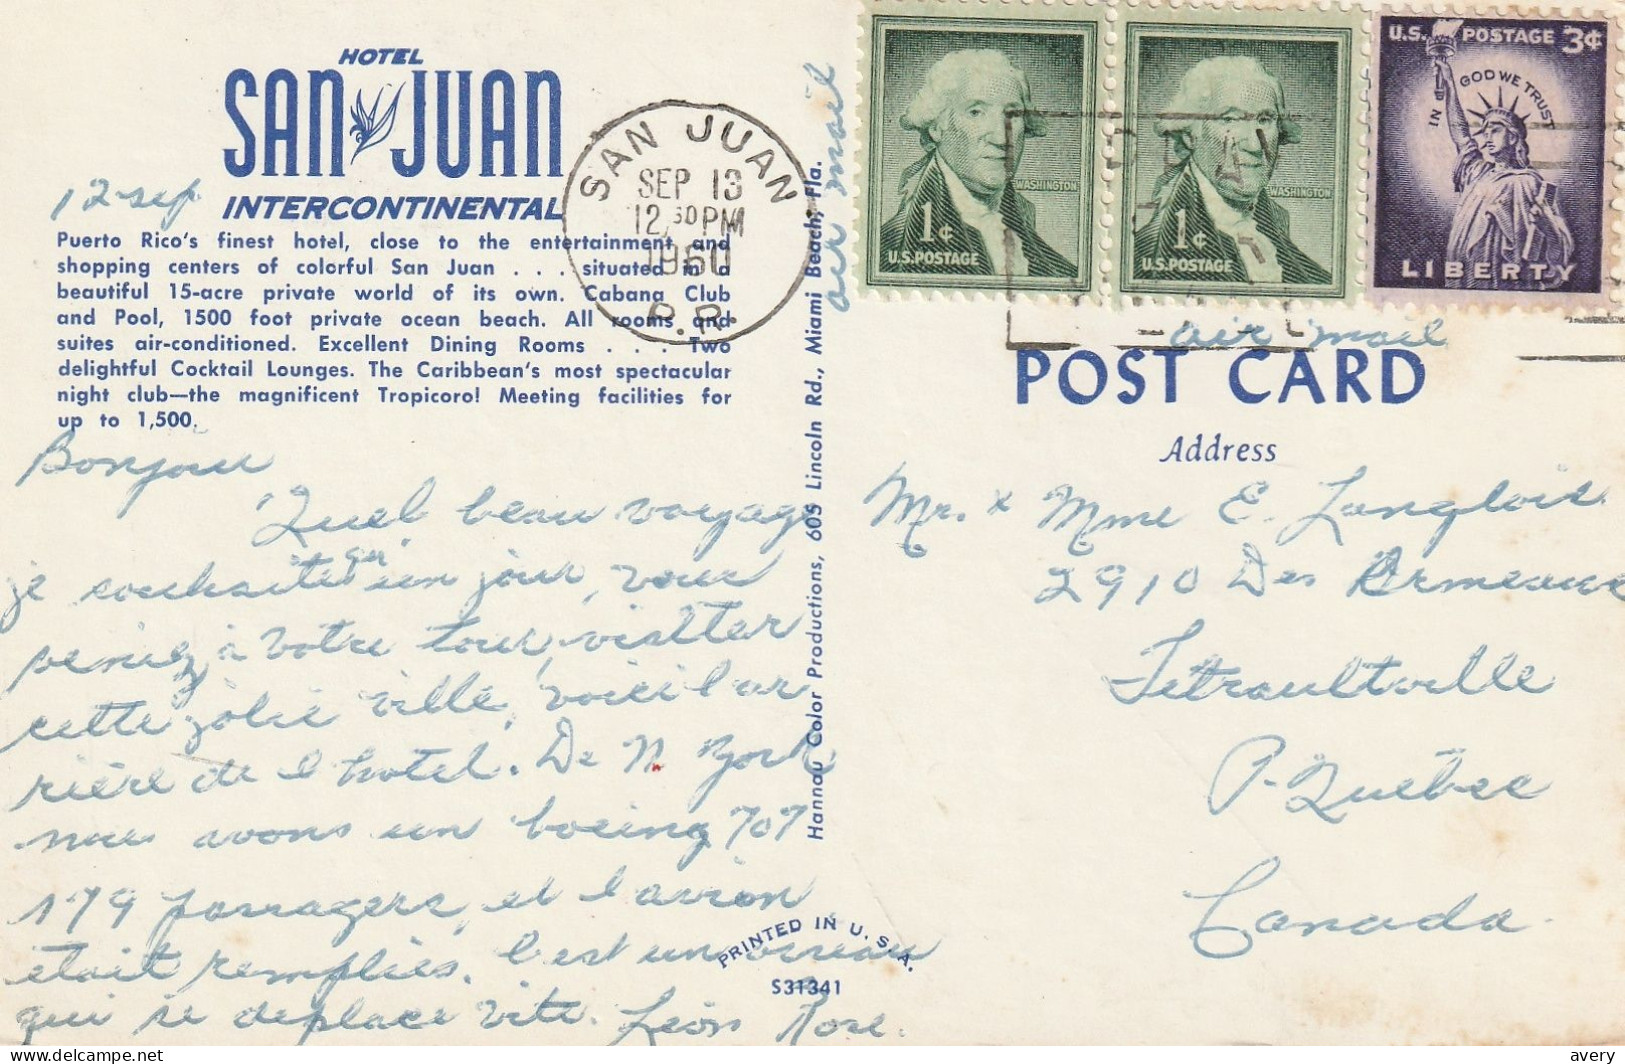 HOTEL
SAN JUAN
INTERCONTINENTAL
12 sep
Puerto Rico's finest hotel, close to the entertainment and
shopping centers of colorful San Juan . . . situated in a
beautiful 15-acre private world of its own. Cabana Club
and Pool, 1500 foot private ocean beach. All rooms and
suites air-conditioned. Excellent Dining Rooms . . . Two
delightful Cocktail Lounges. The Caribbean's most spectacular
night club—the magnificent Tropicoro! Meeting facilities for
up to 1,500.
Bonjour
Quel beau voyage
je souhaite qu'un jour, vous
veniez à votre tour, visiter
cette jolie ville, voici l'ar
rière de l hotel. De N York
nous avons un boeing 707
179 passagers, et l avion
était remplies. C'est un oiseau
qui se deplace vite. Léon Rose.
SAN JUAN
SEP 13
12 30 PM
1960
P.R.
Hannau Color Productions, 605 Lincoln Rd., Miami Beach, Fla.
air mail
PRINTED IN U. S. A.
S31341
WASHINGTON
1¢
U.S.POSTAGE
WASHINGTON
1¢
U.S.POSTAGE
U.S. POSTAGE 3¢
IN GOD WE TRUST
LIBERTY
air mail
POST CARD
Address
Mr. & Mme E. Langlois
2910 Des Ormeaux
Tetraultville
P. Québec
Canada
avery